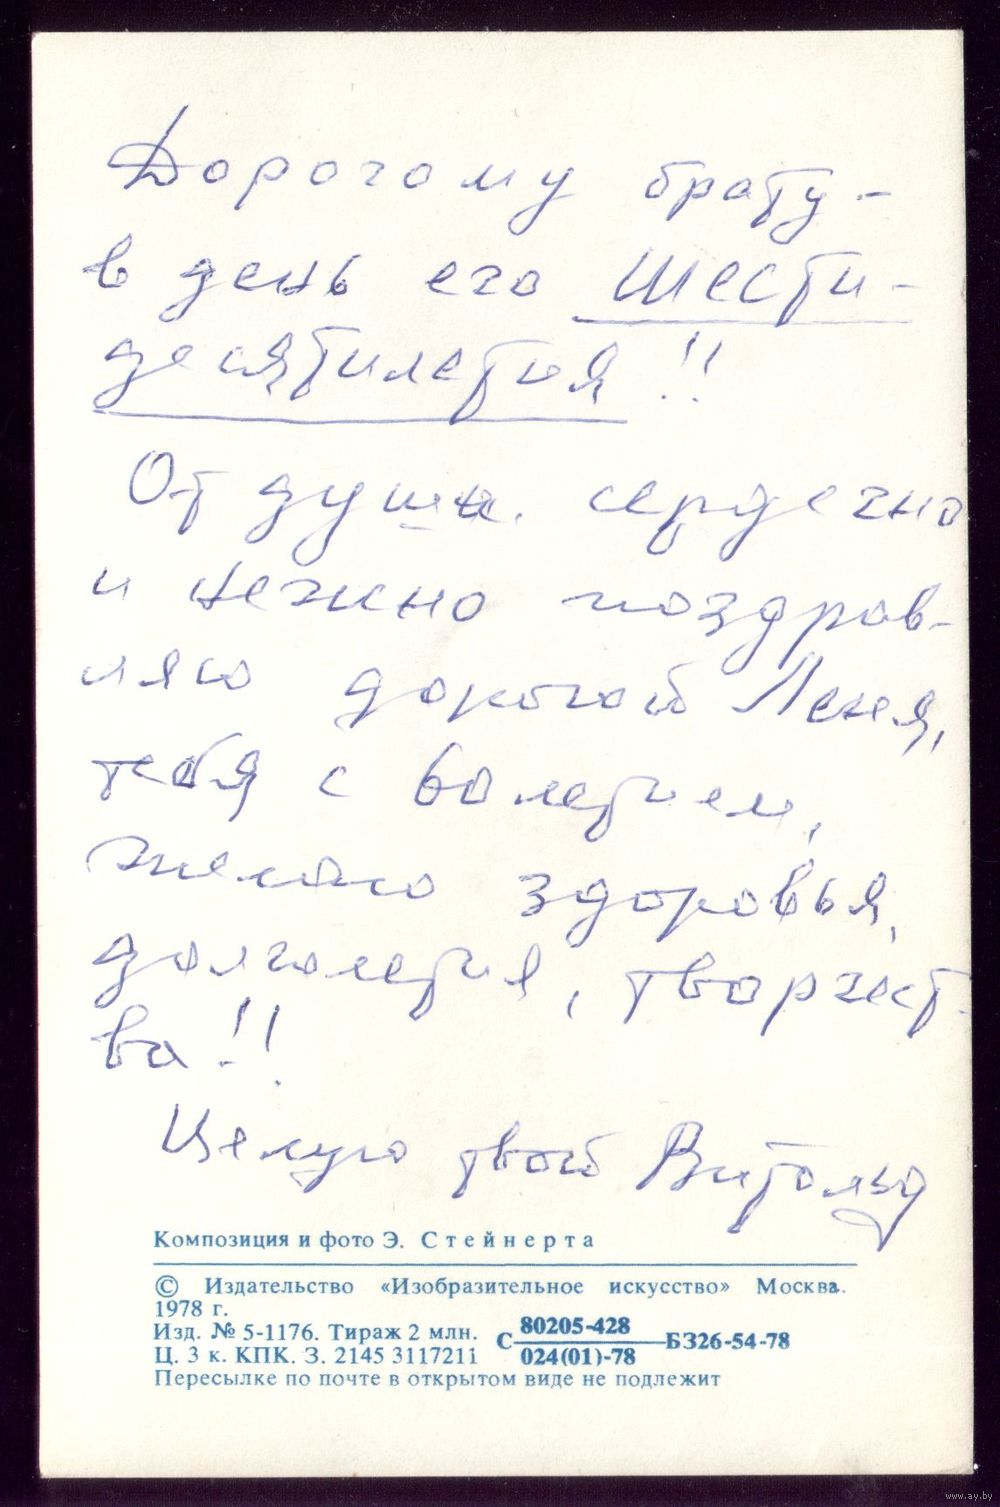 Дорогому брату -
в день его шести-
десятилетия!!
От души, сердечно
и нежно поздрав-
ляю дорогой Леня,
тебя с 60 летием,
желаю здоровья,
долголетия, творчест-
ва!!
Целую твой Витольд
Композиция и фото Э. Стейнерта
© Издательство «Изобразительное искусство» Москва.
1978 г.
Изд. № 5-1176. Тираж 2 млн.
Ц. 3 к. КПК. З. 2145 3117211
С 80205-428 БЗ26-54-78
024(01)-78
Пересылке по почте в открытом виде не подлежит
www.ay.by